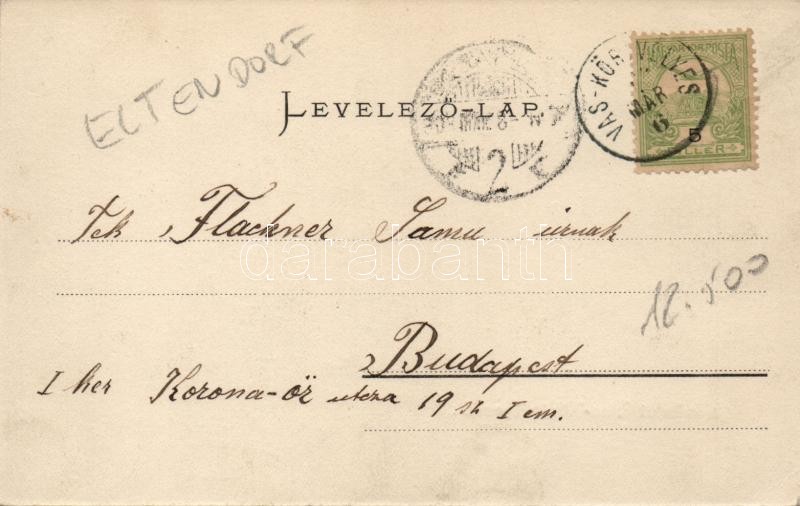 ELTENDORF
LEVELEZŐ-LAP.
VAS-KÖRTVÉLYES
MÁR
6
MAGYAR POSTA
5
FILLÉR
2
Tek. Flachner Samu úrnak
darabanth
12.500
Budapest
I ker Korona-őr utcza 19 sz I em.